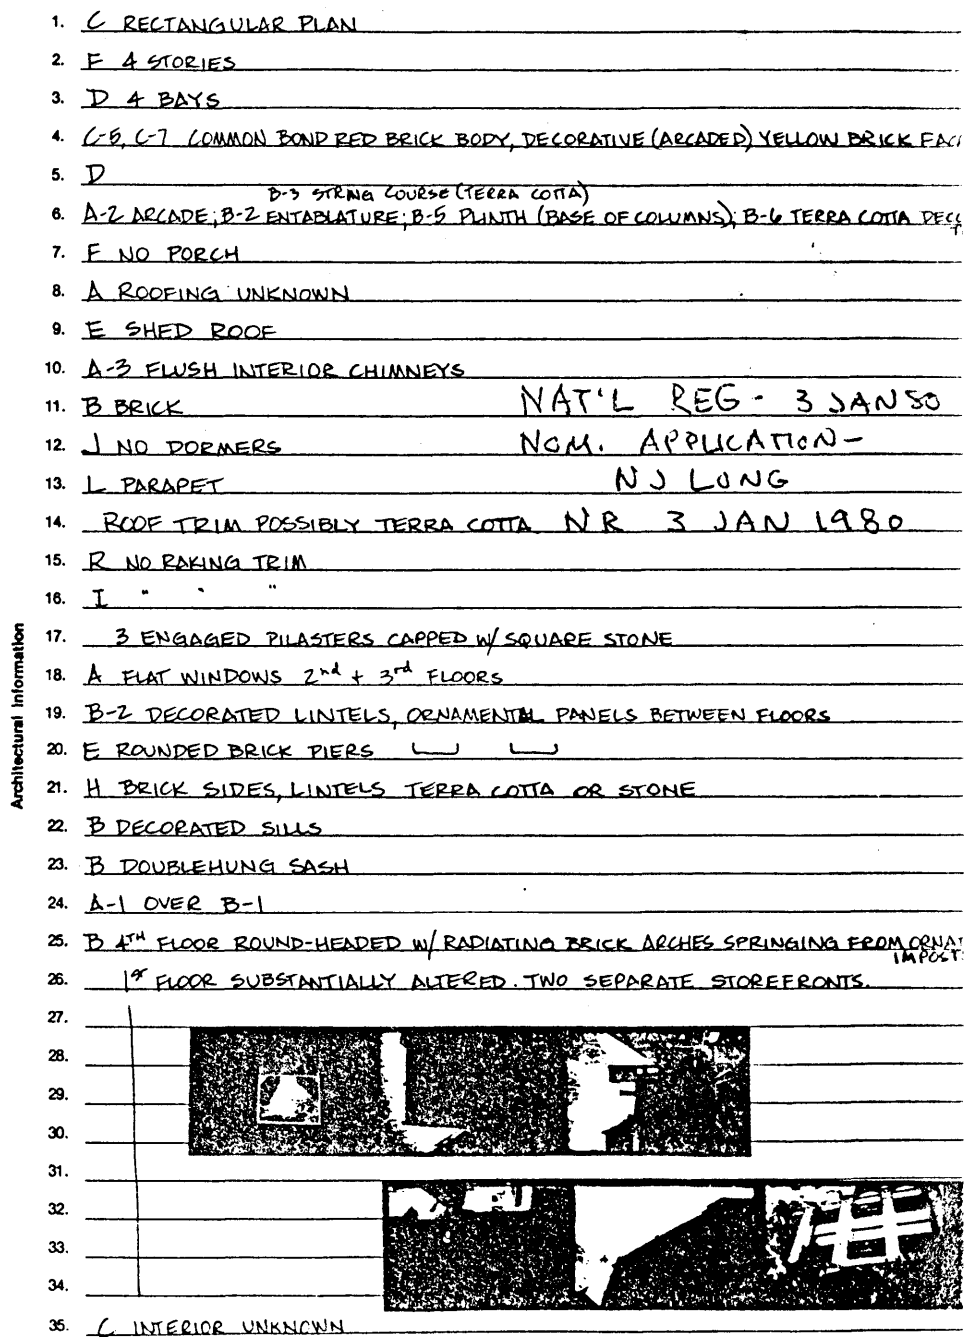 1. C RECTANGULAR PLAN
2. F 4 STORIES
3. D 4 BAYS
4. C-5, C-7 COMMON BOND RED BRICK BODY, DECORATIVE (ARCADED) YELLOW BRICK
5. D
B-3 STRING COURSE (TERRA COTTA)
6. A-2 ARCADE; B-2 ENTABLATURE; B-5 PLINTH (BASE OF COLUMNS); B-6 TERRA COTTA
7. F NO PORCH
8. A ROOFING UNKNOWN
9. E SHED ROOF
10. A-3 FLUSH INTERIOR CHIMNEYS
11. B BRICK NAT'L REG - 3 JAN 80
12. J NO DORMERS NOM. APPLICATION -
13. L PARAPET NJ LONG
14. ROOF TRIM POSSIBLY TERRA COTTA NR 3 JAN 1980
15. R NO RAKING TRIM
16. I " " "
17. 3 ENGAGED PILASTERS CAPPED W/ SQUARE STONE
18. A FLAT WINDOWS 2nd + 3rd FLOORS
19. B-2 DECORATED LINTELS, ORNAMENTAL PANELS BETWEEN FLOORS
20. E ROUNDED BRICK PIERS
21. H BRICK SIDES, LINTELS TERRA COTTA OR STONE
22. B DECORATED SILLS
23. B DOUBLEHUNG SASH
24. A-1 OVER B-1
25. B 4TH FLOOR ROUND-HEADED W/ RADIATING BRICK ARCHES SPRINGING FROM
26. 1st FLOOR SUBSTANTIALLY ALTERED. TWO SEPARATE STOREFRONTS.
27.
28.
29.
30.
31.
32.
33.
34.
35. C INTERIOR UNKNOWN
Architectural Information